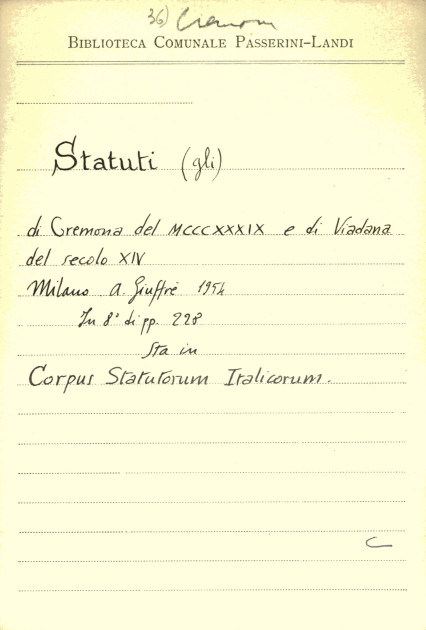 36) Cremona
BIBLIOTECA COMUNALE PASSERINI-LANDI
Statuti (gli)
di Cremona del MCCCXXXIX e di Viadana
del secolo XIV
Milano A. Giuffrè 1954
In 8° di pp. 228
Sta in
Corpus Statutorum Italicorum.
C